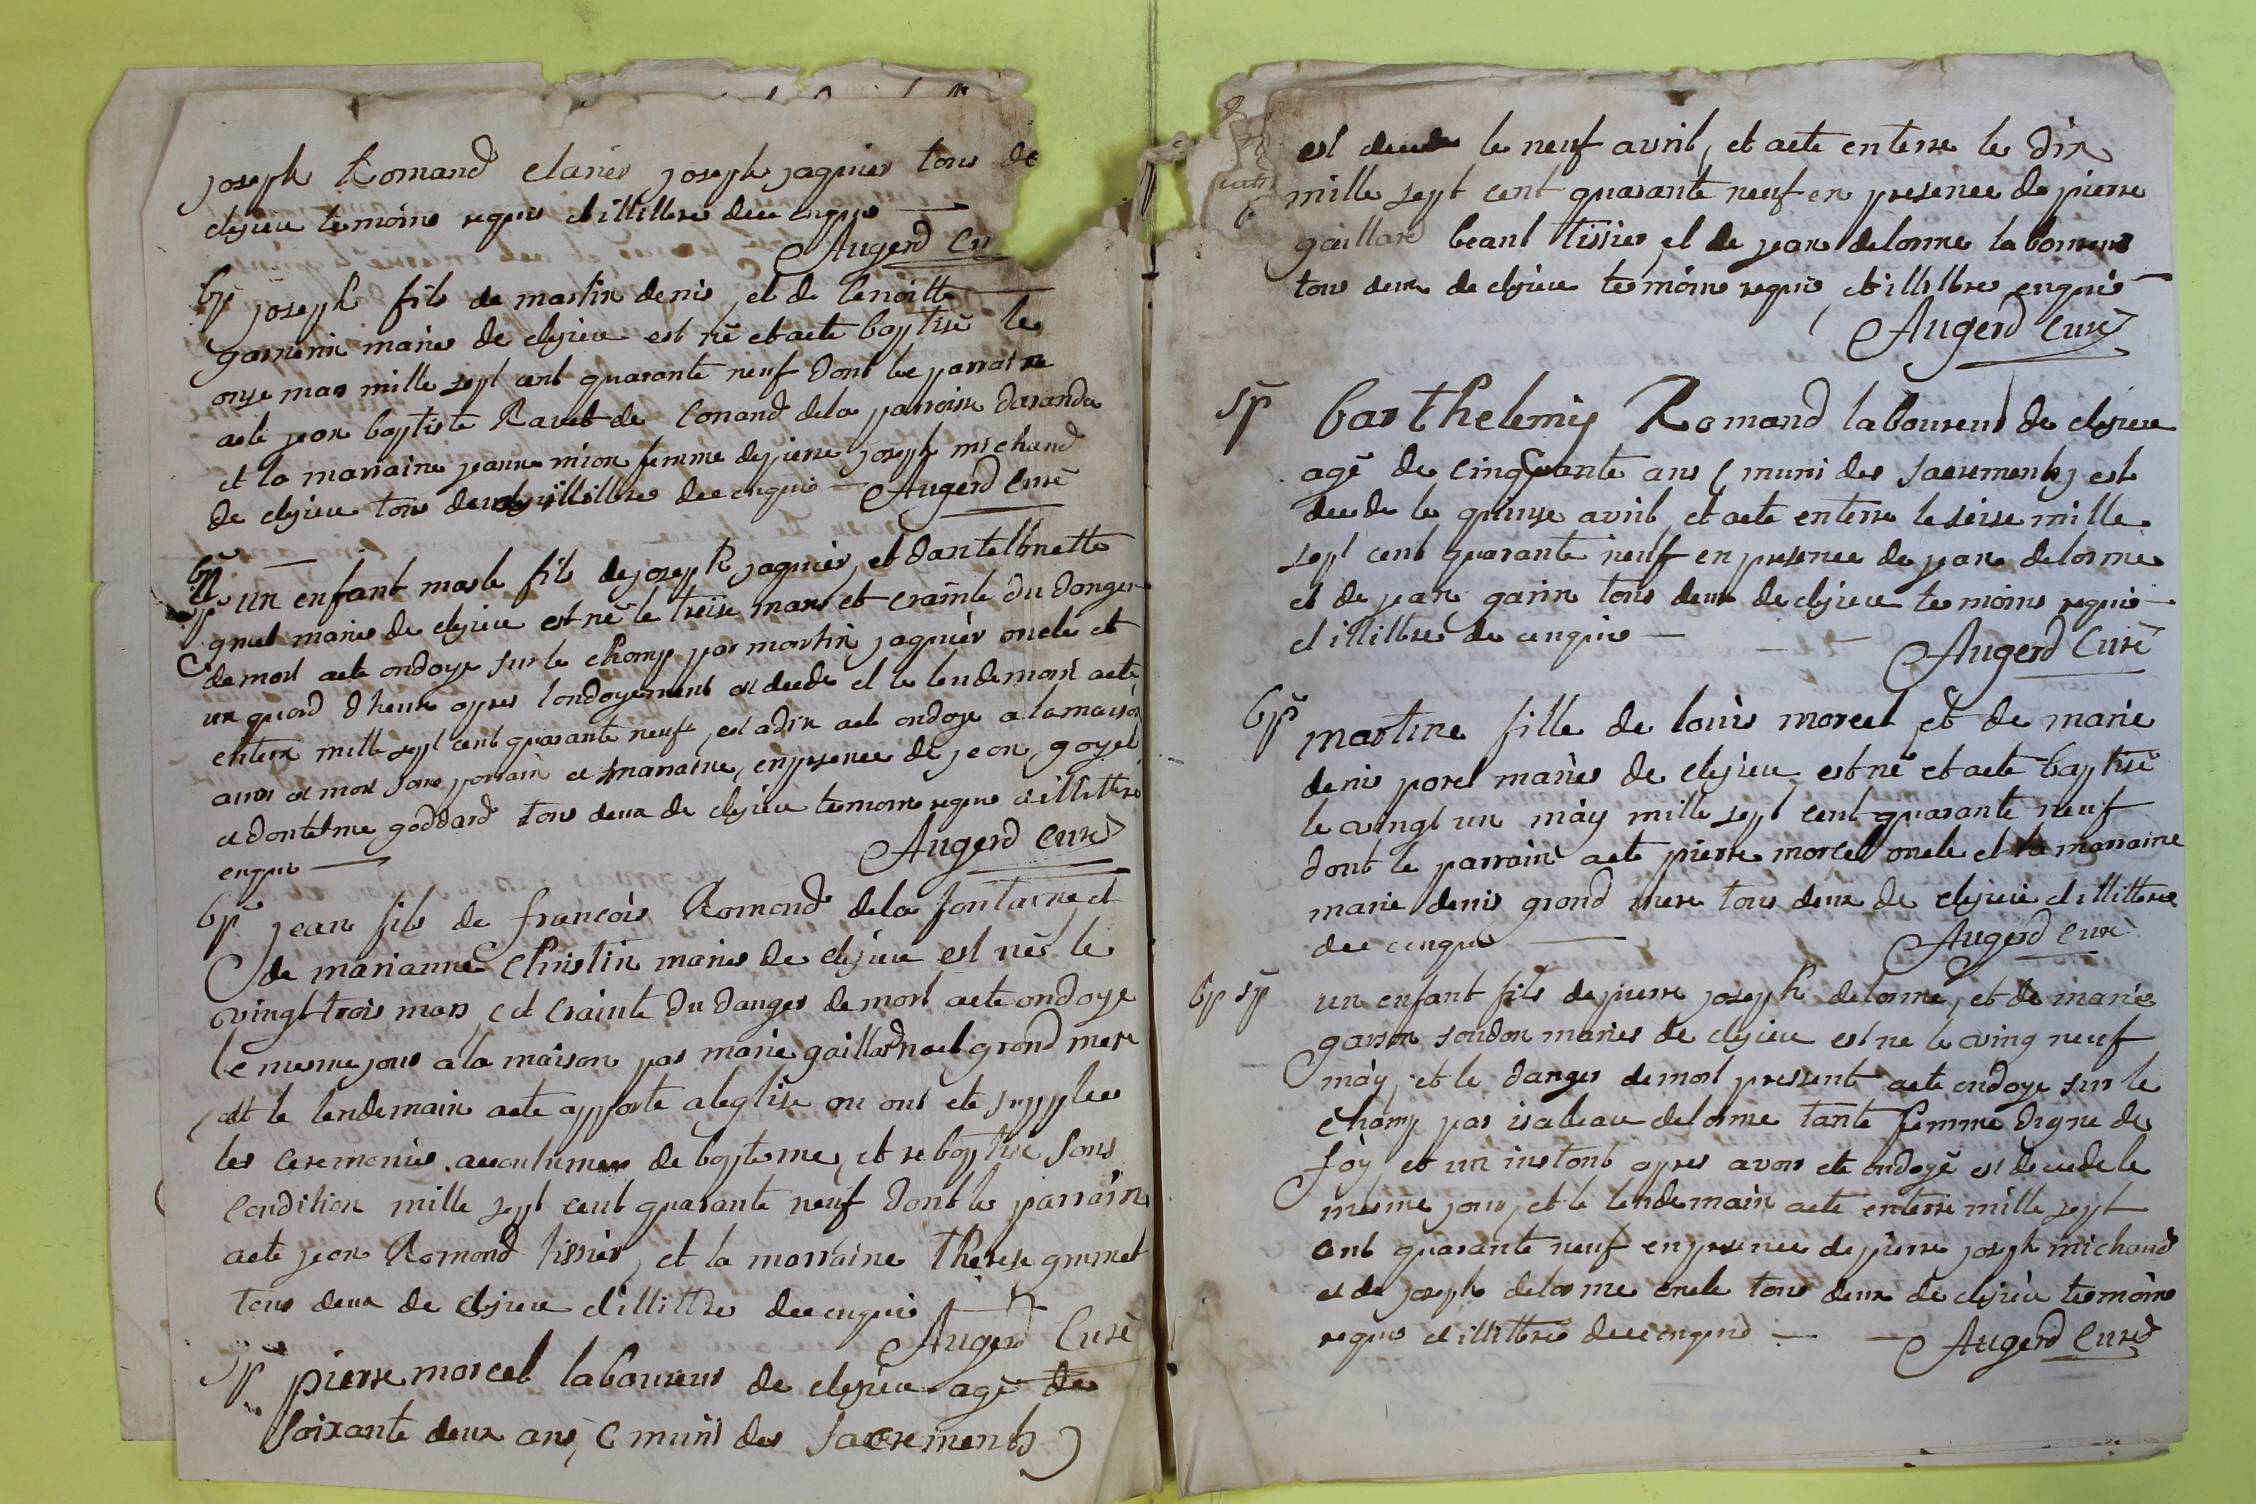 joseph Romand clavier joseph jaquier tous de
cleyzieu temoins requis et illittere de ce enquis
Augerd Cu
bp joseph fils de martin denis et de benoitte
maries de cleyzieu est né et a eté baptisé le
onze mars mille sept cent quarante neuf dont le parrain
a eté jean baptiste Ravet de Conand de la parroisse daranda
et la marraine jeanne mion femme de pierre joseph michaud
de cleyzieu tous deux illittere de ce enquis Augerd Curé
bp
sp un enfant masle fils de joseph jaquier, et dantelmette
maries de cleyzieu est né le treise mars et crainte du danger
de mort a eté ondoye sur le champ par martin jaquier oncle et
un quard dheure apres londoyement est decede et le lendemain a eté
enterre mille sept cent quarante neuf, est a dire a eté ondoye a la maison
et mort sans parrain et marraine, en presence de jean goyet
et dantelme goddard tous deux de cleyzieu temoins requis et illittere
enquis Augerd Curé
bp jean fils de francois Romand de la fontaine et
de marianne Christin maries de cleyzieu est né le
vingt trois mars, et crainte du danger de mort a eté ondoye
le mesme jour a la maison par marie gaillard noel grand mere
et le lendemain a eté apporte a leglise ou ont eté supplees
les ceremonies accoutumees de baptesme, et rebaptise sous
condition mille sept cent quarante neuf dont le parrain
a eté jean Romand tissier, et la marraine therese
tous deux de cleyzieu et illittere de ce enquis
Augerd Curé
sp pierre morcel laboureur de cleyzieu agé de
soixante deux ans, (muni des sacrements)
est decede le neuf avril, et a eté enterre le dix
mille sept cent quarante neuf en presence de pierre
gaillard tissier, et de jean delorme laboureur
tous deux de cleyzieu temoins requis et illittere enquis
Augerd Curé
sp barthelemy Romand laboureur de cleyzieu
agé de cinquante ans (muni des sacrements) est
decede le quinze avril, et a eté enterre le seize mille
sept cent quarante neuf en presence de jean delorme
et de jean garin tous deux de cleyzieu temoins requis
et illittere de ce enquis
Augerd Curé
bp martine fille de louis morcel et de marie
denis porel maries de cleyzieu est né et a eté baptisé
le vingt un máy mille sept cent quarante neuf
dont le parrain a eté pierre morcel oncle et la marraine
marie denis grand mere tous deux de cleyzieu et illittere
de ce enquis Augerd Curé
bp sp un enfant fils de pierre joseph delorme, et de marie
soudon maries de cleyzieu est né le ving neuf
máy, et le danger de mort pressent a eté ondoye sur le
champ par isabeau delorme tante femme digne de
foy, et un instant apres avoir eté ondoyé est decede le
mesme jour, et le lendemain a eté enterre mille sept
cent quarante neuf en presence de pierre joseph michaud
et de joseph delorme oncle tous deux de cleyzieu temoins
requis et illittere de ce enquis Augerd Curé